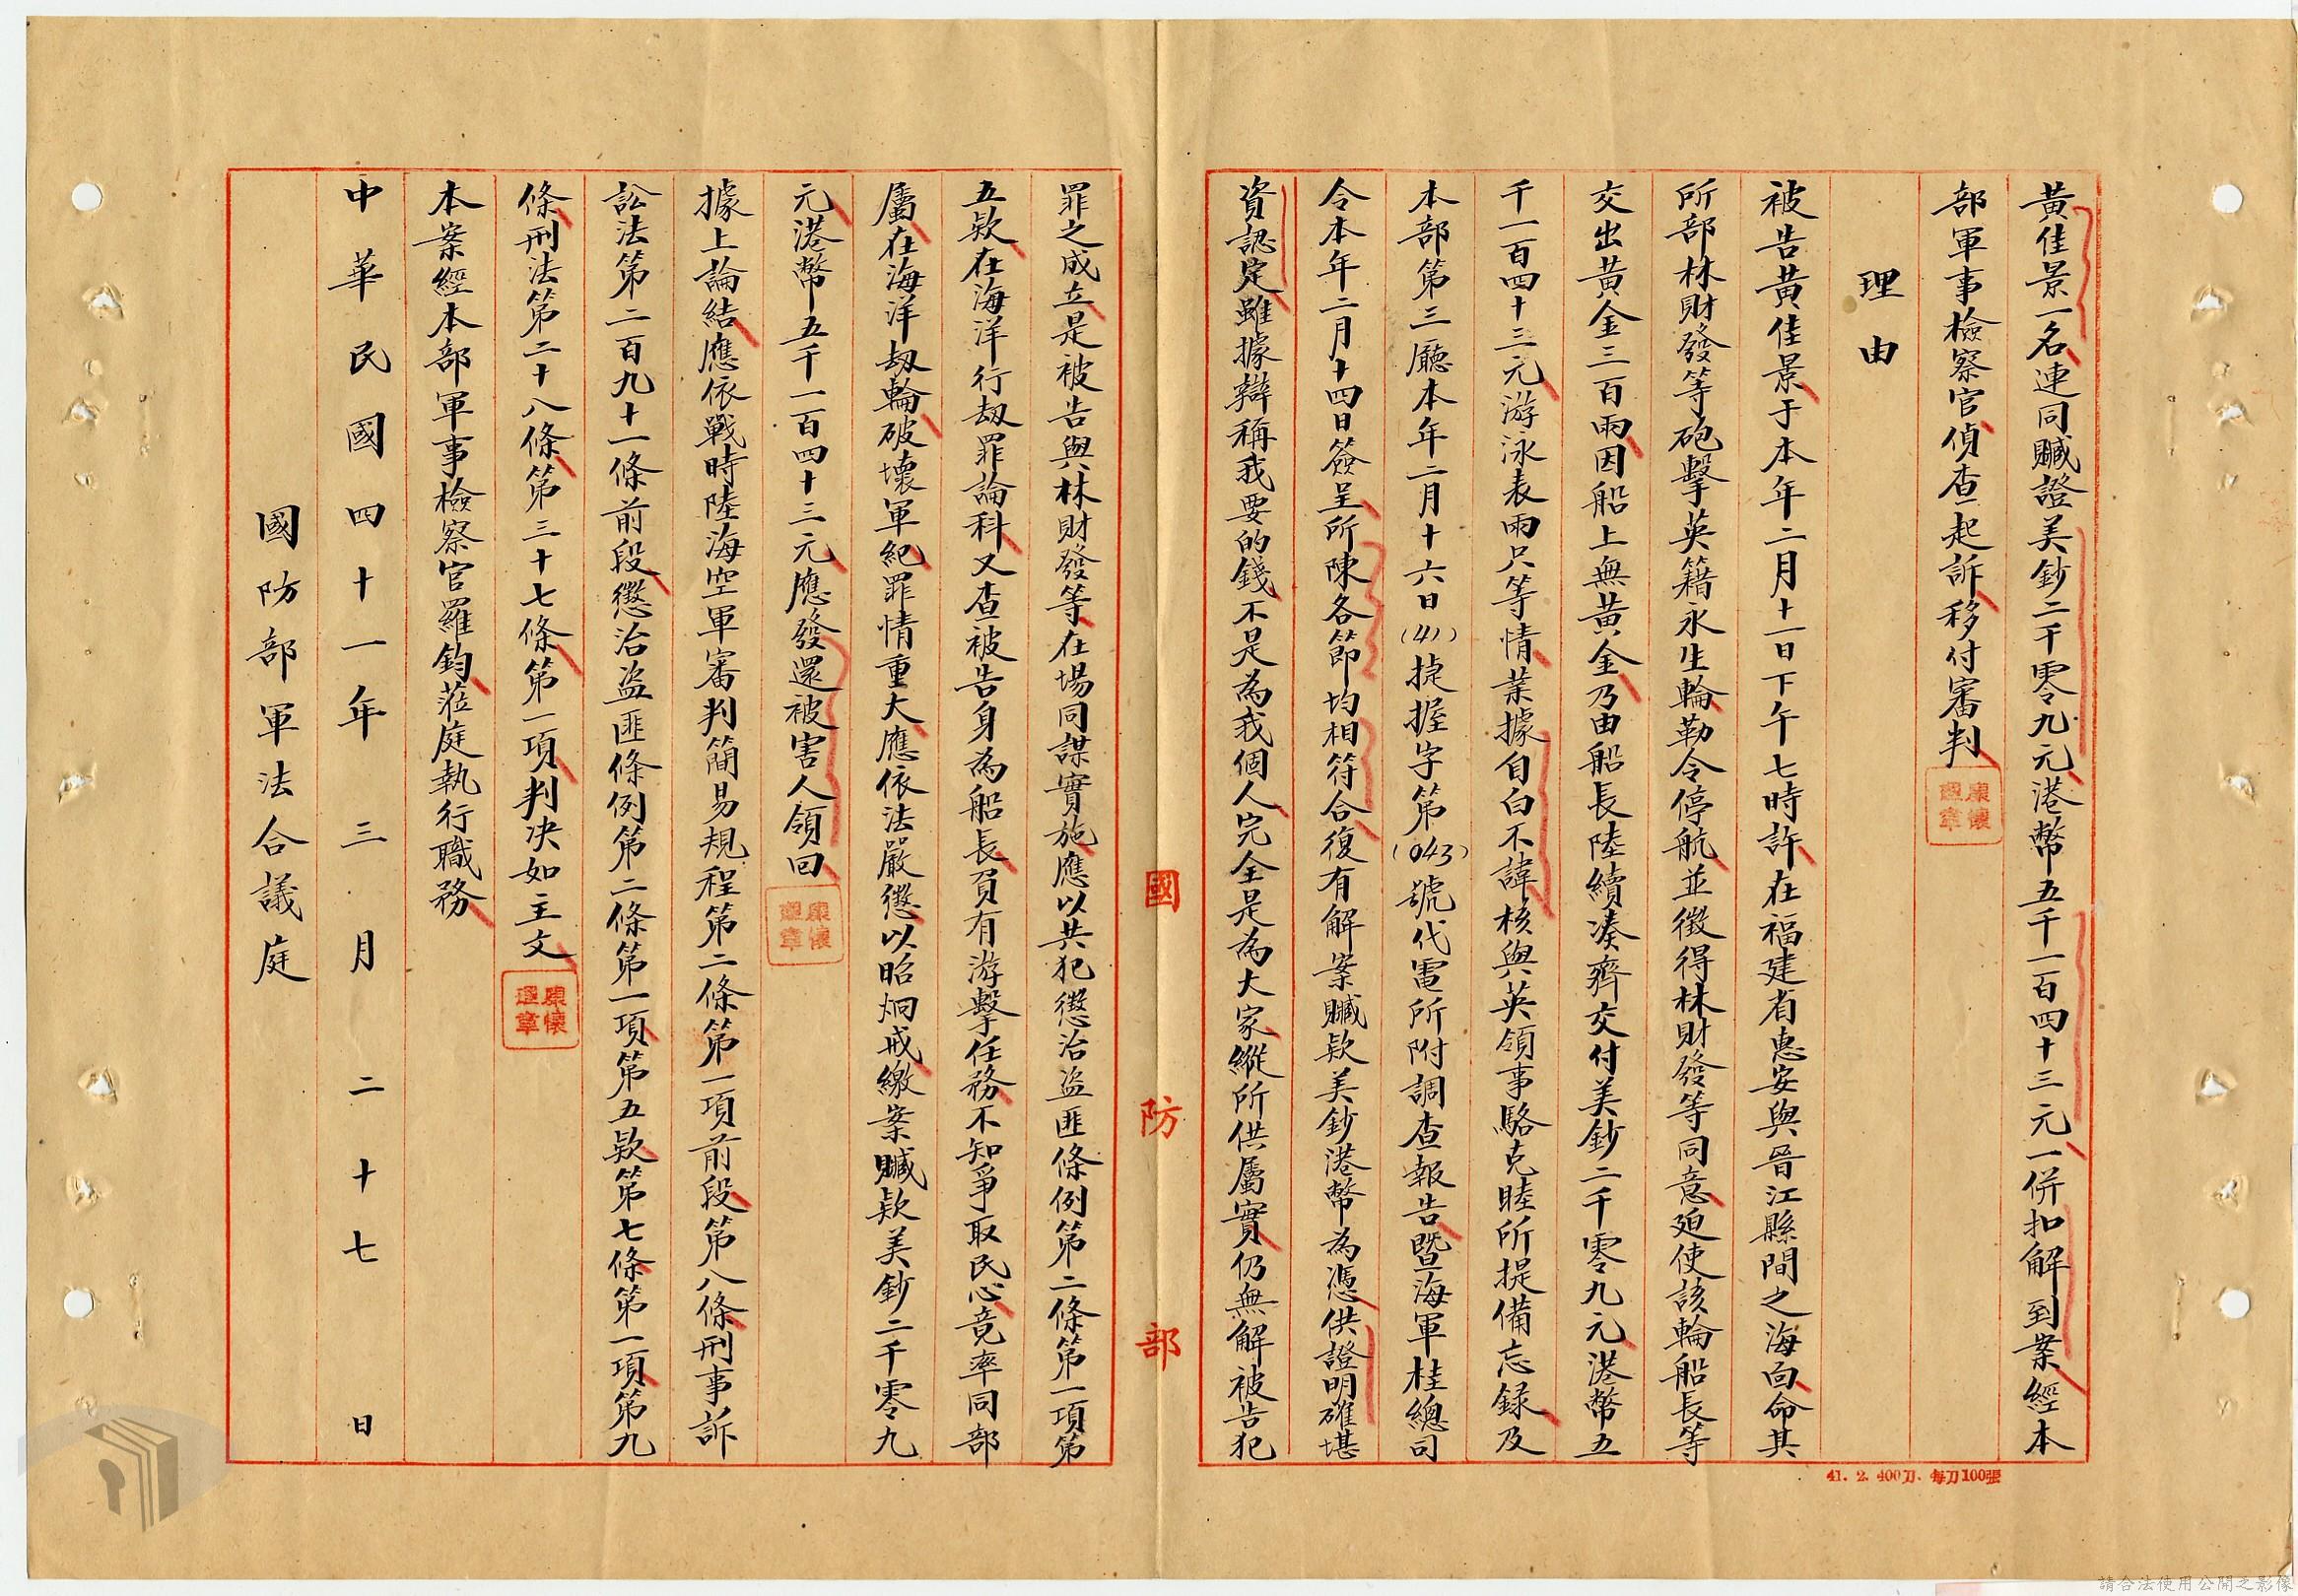 黃佳景一名連同贓證美鈔二千零九元港幣五千一百四十三元一併扣解到案經本
部軍事檢察官偵查起訴移付審判
理由
被告黃佳景于本年二月十一日下午七時許在福建省惠安與晉江縣間之海面命其
所部林財發等砲擊英籍永生輪勒令停航並徵得林財發等同意廹使該輪船長等
交出黃金三百兩因船上無黃金乃由船長陸續湊齊交付美鈔二千零九元港幣五
千一百四十三元游泳表兩只等情業據自白不諱核與英領事駱克睦所提備忘録及
本部第三廳本年二月十六日(41)捷握字第(043)號代電所附調查報告暨海軍桂總司
令本年二月十四日簽呈所陳各節均相符合復有解案贓欵美鈔港幣為憑供證明確堪
資認定雖據辯稱我要的錢不是為我個人完全是為大家縱所供屬實仍無解被告犯
國防部
罪之成立是被告與林財發等在場同謀實施應以共犯懲治盜匪條例第二條第一項第
五欵在海洋行刼罪論科又查被告身為船長負有游擊任務不知爭取民心竟率同部
屬在海洋刼輪破壞軍紀罪情重大應依法嚴懲以昭炯戒繳案贓欵美鈔二千零九
元港幣五千一百四十三元應發還被害人領回
據上論結應依戰時陸海空軍審判簡易規程第二條第一項前段第八條刑事訴
訟法第二百九十一條前段懲治盜匪條例第二條第一項第五欵第七條第一項第九
條刑法第二十八條第三十七條第一項判决如主文
本案經本部軍事檢察官羅鈞蒞庭執行職務
中華民國四十一年三月二十七日
國防部軍法合議庭
41. 2. 400刀. 每刀100張
請合法使用公開之影像